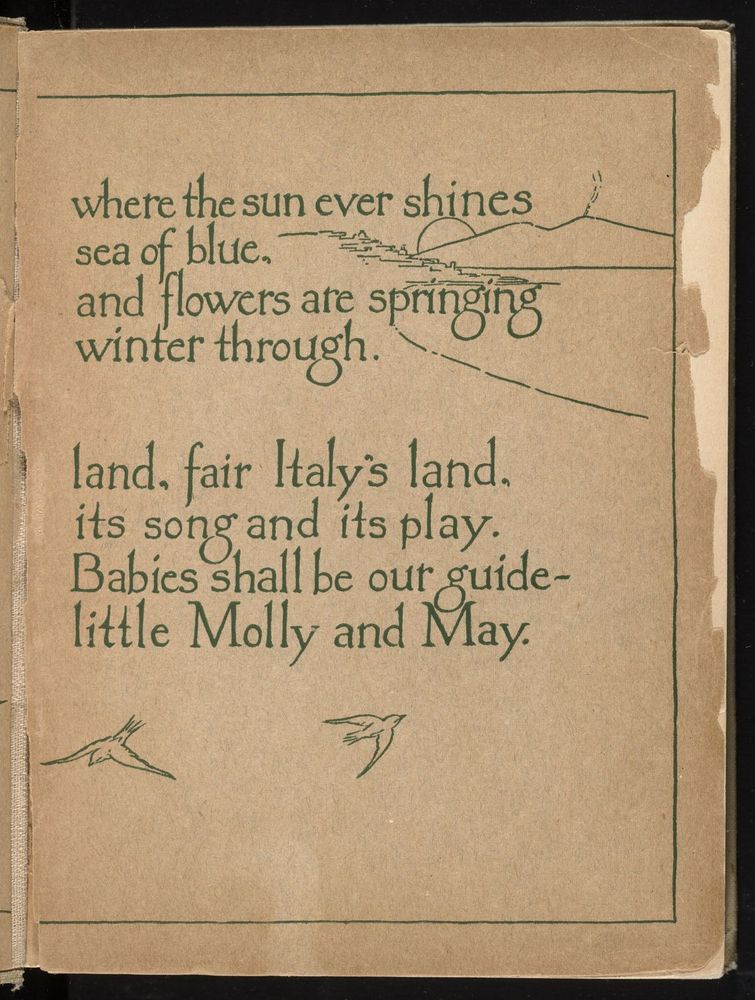 where the sun ever shines
sea of blue,
and flowers are springing
winter through.
land, fair Italy's land,
its song and its play.
Babies shall be our guide-
little Molly and May.